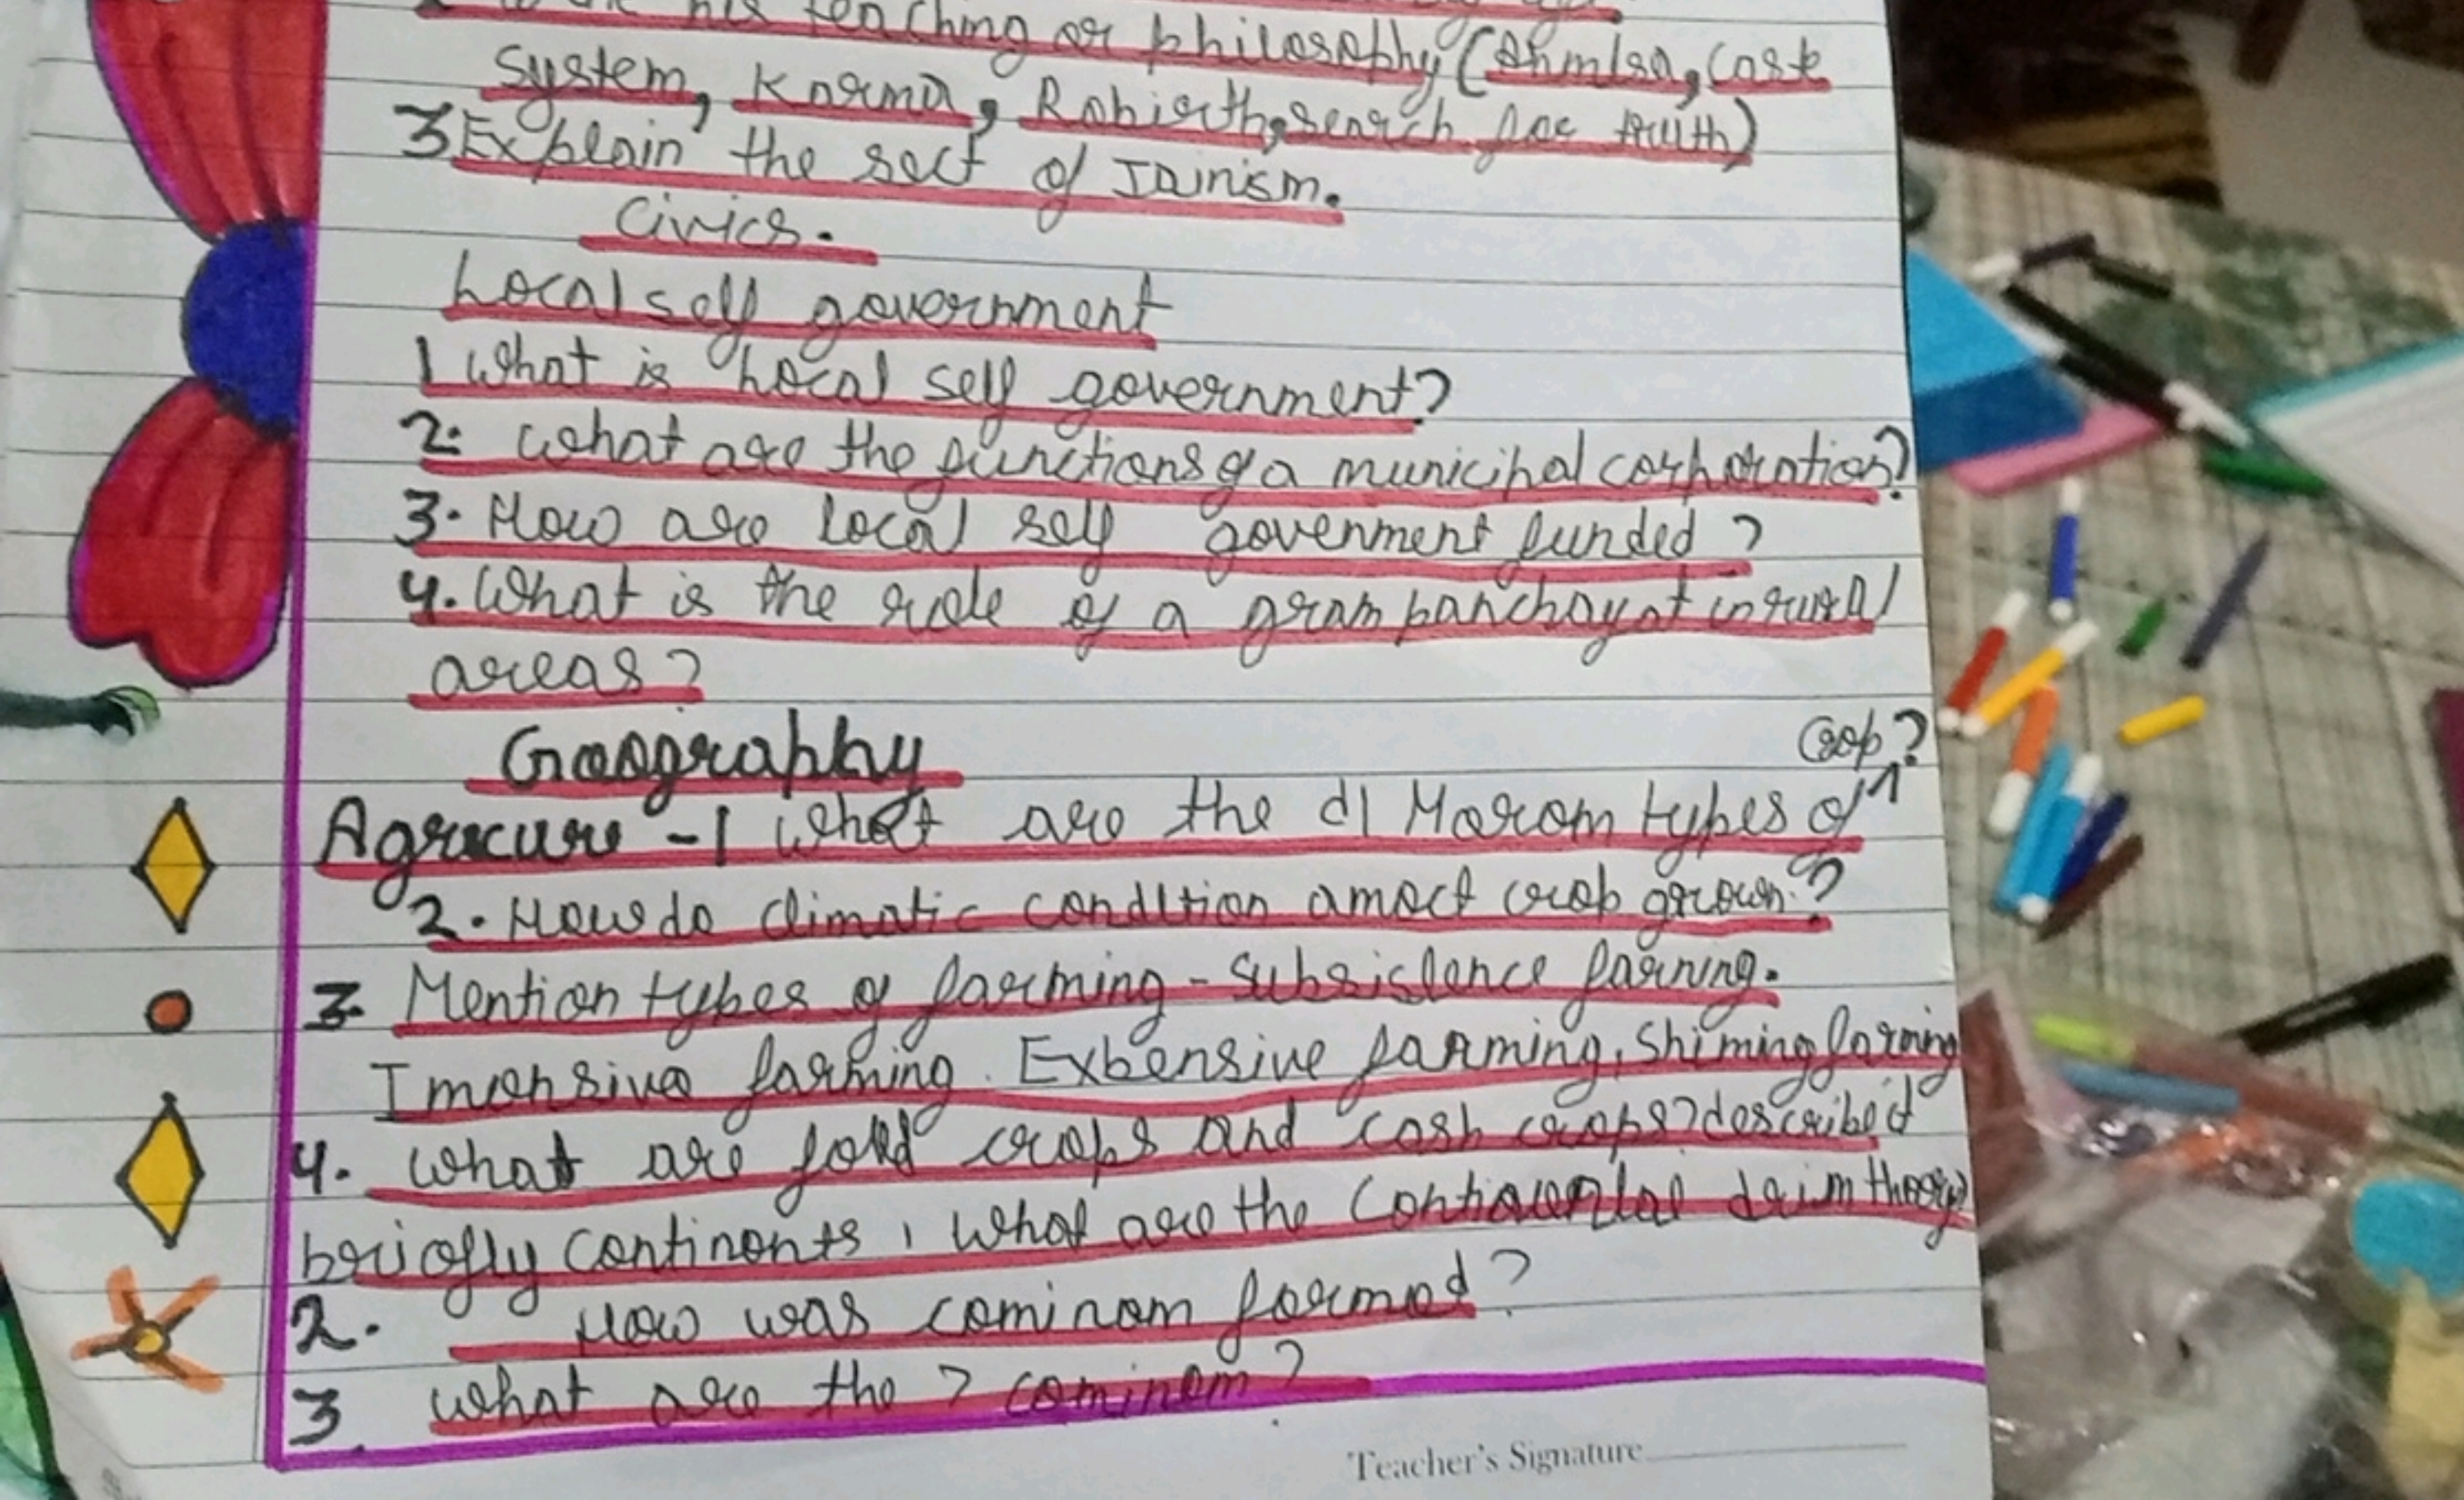 his teaching or philosophy (Ahmisa, Cast
System, Karma, Rabirth, search for truth)
3 Explain the sect of Jainism.
Civics.
Local self government
1 What is Local self government?
2. What are the functions of a municipal corporation?
3. How are local self govenment funded?
4. What is the role of a gram panchayat in rural
areas?
Geography
Crop?
Agracure - 1 What are the dI Marom types of
2. How do climatic condition amect crop grown?
3. Mention types of farming - Subsislence farning.
Imensive farming. Expensive farming, Shiming farming
4. What are food crops and cash crops? described
briefly continents, What are the Continental daim theory
2. How was cominom formed?
3. What are the 7 cominom?
Teacher's Signature